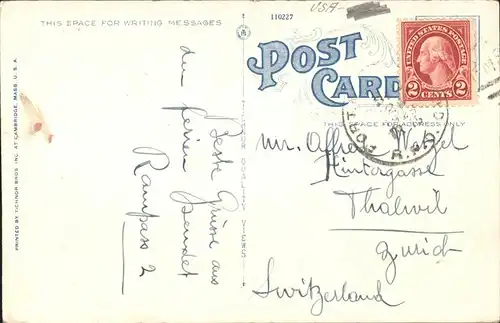 THIS SPACE FOR WRITING MESSAGES
110227
USA-
POST
CARD
UNITED STATES POSTAGE
2 CENTS 2
THIS SPACE FOR ADDRESS ONLY
R.P.O.
PRINTED BY TICHNOR BROS. INC. AT CAMBRIDGE, MASS. U. S. A.
TICHNOR QUALITY VIEWS
Beste Grüsse aus
den Ferien sendet
Mr. Alfred
Hintergasse
Thalwil
Zurich
Switzerland